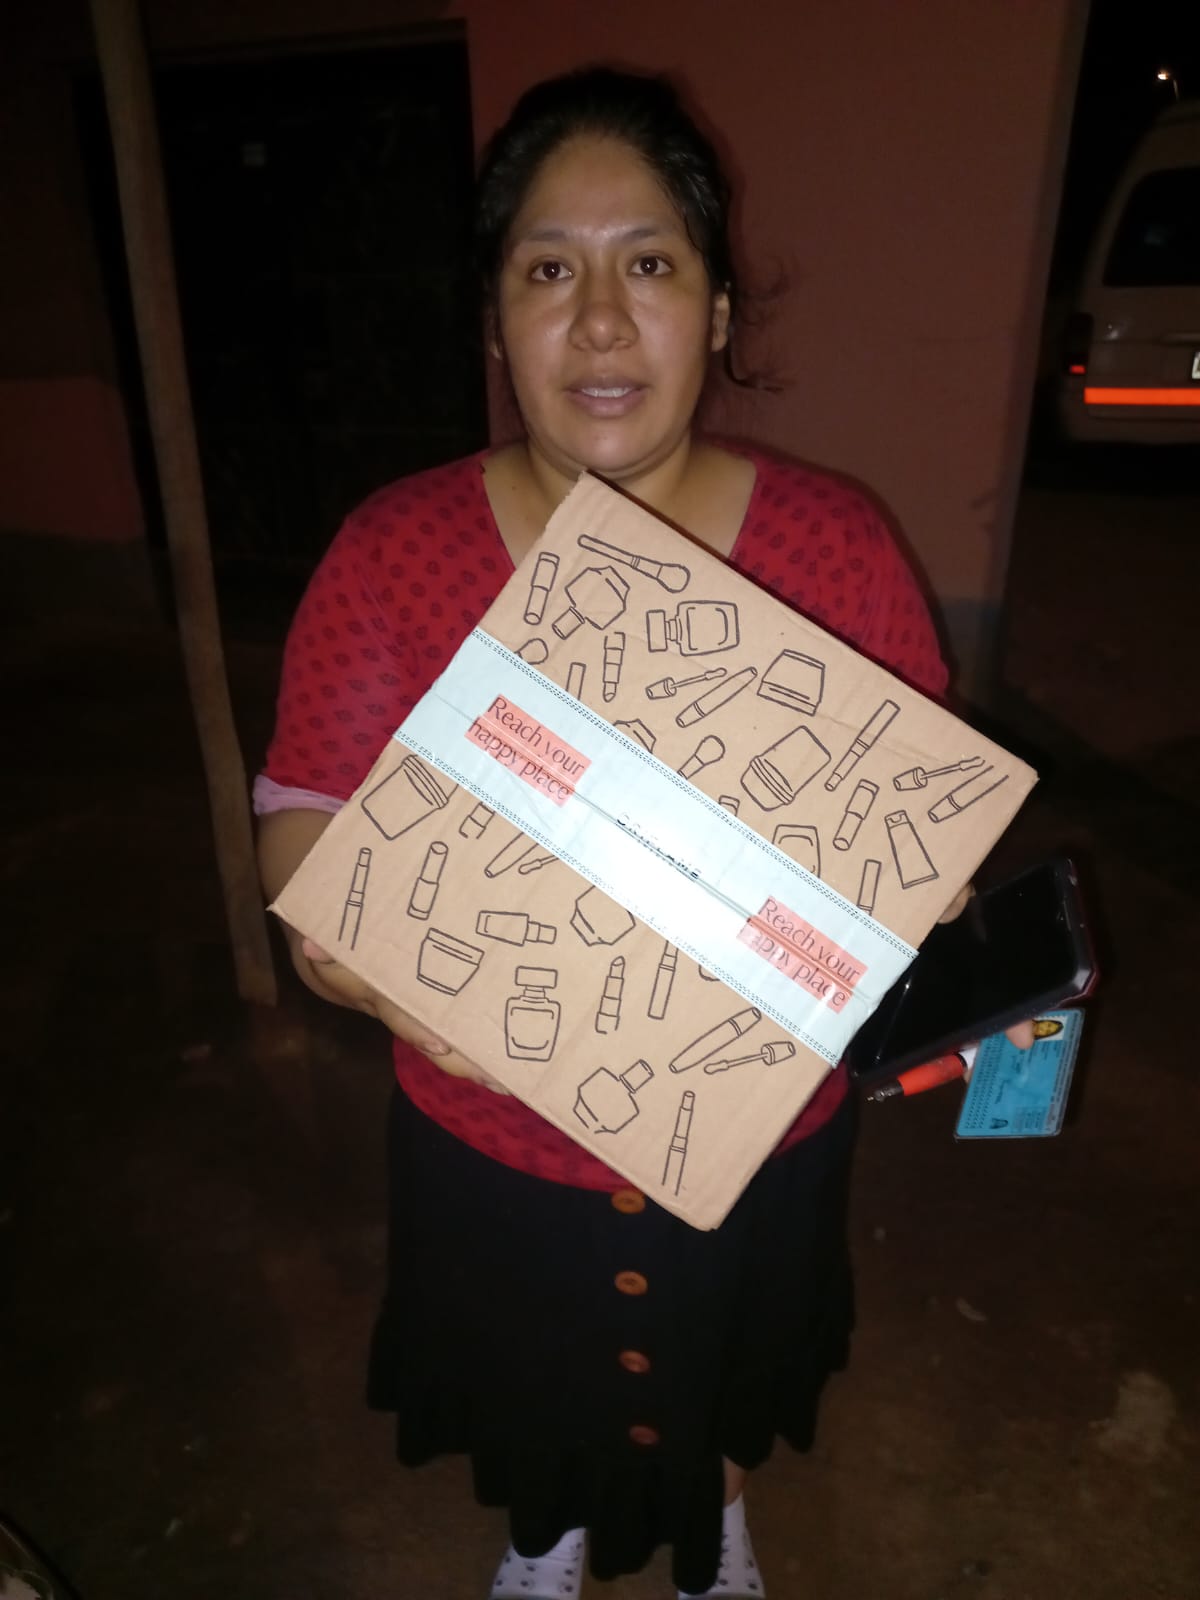 Reach your
happy place
ORIFLAME
Reach your
happy place